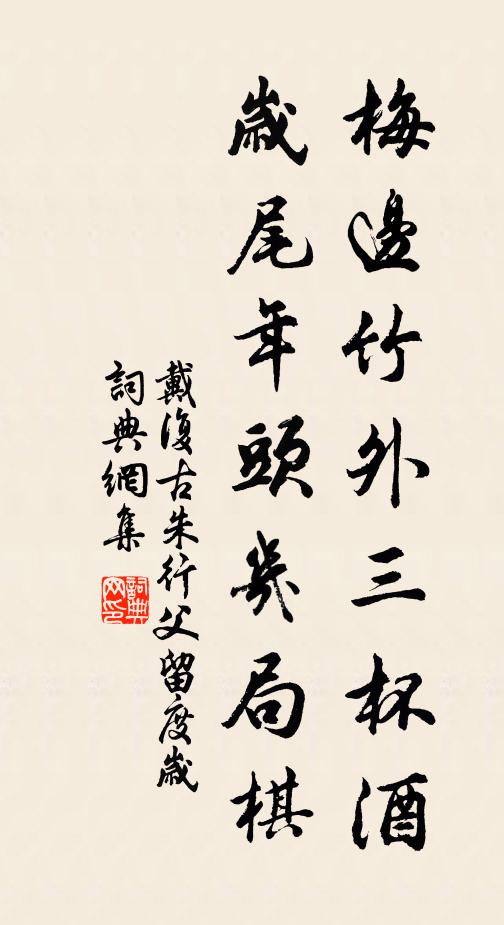 梅邊竹外三杯酒
歲尾年頭幾局棋
戴復古朱行父留度歲
詞典網集
詞典网印